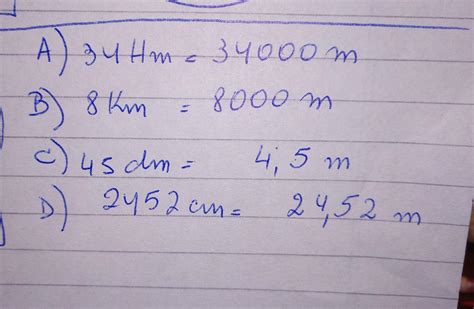 A) 34 Hm = 34000 m
B) 8 Km = 8000 m
C) 45 dm = 4,5 m
D) 2452 cm = 24,52 m